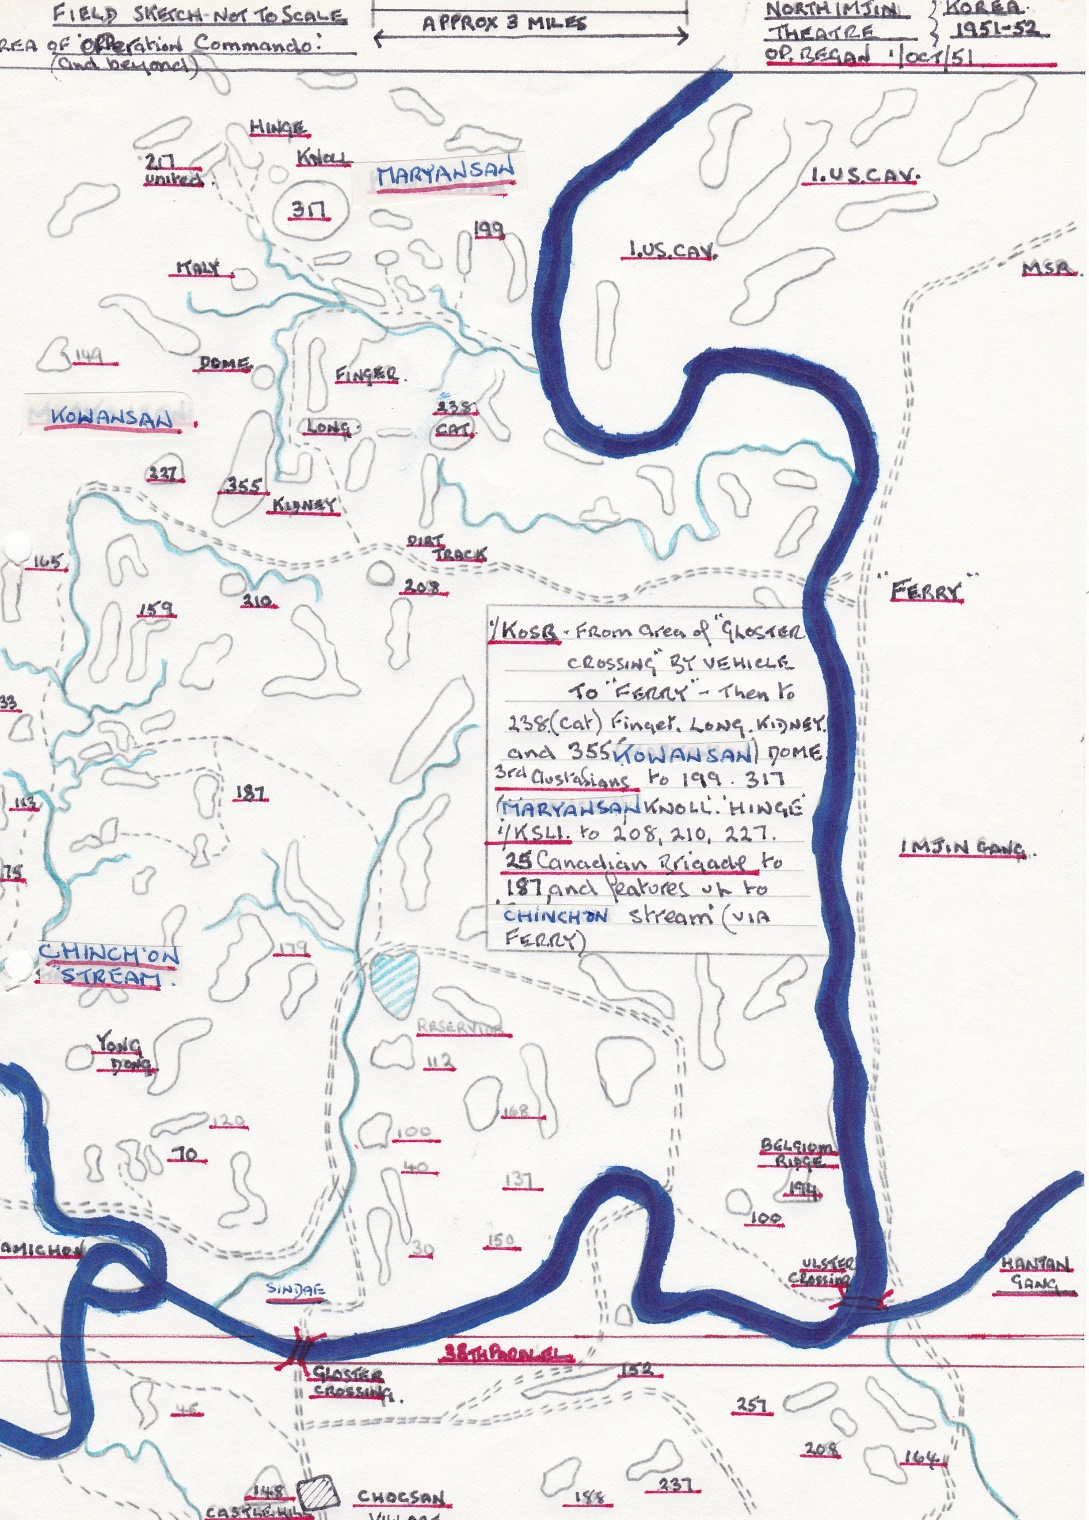 FIELD SKETCH-NOT TO SCALE
REA OF 'OPPeration Commando.'
(and beyond)
APPROX 3 MILES
NORTH IMJIN
THEATRE
OP. BEGAN 1/OCT/51
KOREA.
1951-52
HINGE
KNOLL
217
united.
MARYANSAN
317
199
1.US.CAV.
1.US.CAV.
MSR.
ITALY
149
DOME
FINGER.
KOWANSAN
LONG.
238
CAT.
227
355
KIDNEY
DIRT
TRACK
165
159
210
208
"FERRY"
1/KOSB - From area of "GLOSTER
CROSSING" BY VEHICLE
TO "FERRY" - Then to
238.(Cat) Finger. LONG. KIDNEY.
and 355 KOWANSAN) DOME
3rd Austasians to 199. 317
(MARYANSAN KNOLL. 'HINGE'
1/KSLI. to 208, 210, 227.
25 Canadian Brigade to
187, and features up to
'CHINCH'ON stream' (VIA
FERRY)
33
187
113
75
IMJIN GANG.
CHINCH'ON
"STREAM.
179
RESERVIOR
YONG
DONG.
112
168
120
100
70
40
137
BELGIUM
RIDGE
194
100
30
150
AMICHON
SINDAE
ULSTER
CROSSING
HANTAN
GANG.
38TH PARALEL
GLOSTER
CROSSING.
152
46
257
208
164
148
CASTLE HILL
CHOGSAN
VILLAGE
188
237